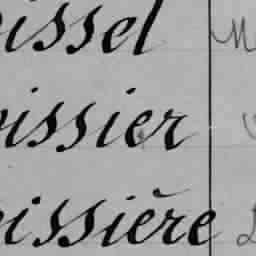 issel
issier
issière